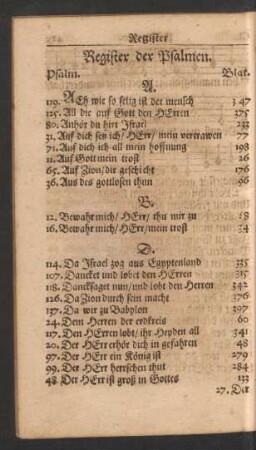 Register
Register der Psalmen.
Psalm. Blat.
A.
119. ACh wie so selig ist der mensch 347
125. All die auf Gott den HErren 375
80. Anhör du hirt Israel 233
31. Auf dich setz ich/HErr/mein vertrawen 77
71. Auf dich ich all mein hoffnung 198
11. Auf Gott mein trost 26
65. Auf Zion/dir geschicht 176
36. Aus des gottlosen thun 96
B.
12. Bewahr mich/HErr/thu mir zu 28
16. Bewahr mich/HErr/mein trost 34
D.
114. Da Israel zog aus Egyptenland 335
107. Dancket und lobet den HErren 315
118. Dancksaget nun/und lobt den Herren 342
126. Da Zion durch sein macht 376
137. Da wir zu Babylon 397
24. Dem Herren der erdkreis 60
117. Den HErren lobt/ihr Heyden all 341
20. Der HErr erhör dich in gefahren 48
97. Der HErr ein König ist 279
99. Der HErr herrschen thut 284
48. Der HErr ist groß in Gottes 133
27. Der